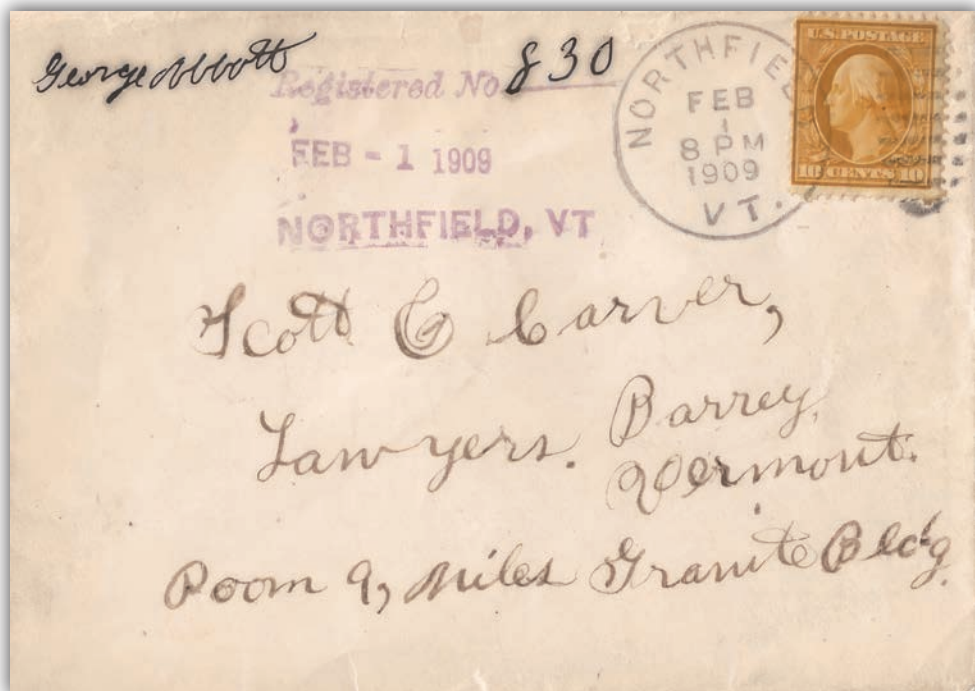 George Abbott
Registered No. 830
FEB - 1 1909
NORTHFIELD, VT
NORTHFIELD
FEB
1
8 PM
1909
VT.
U.S. POSTAGE
10 CENTS 10
Scott & Carver,
Lawyers. Barrey,
Vermont.
Room 9, Miles Granite Bldg.